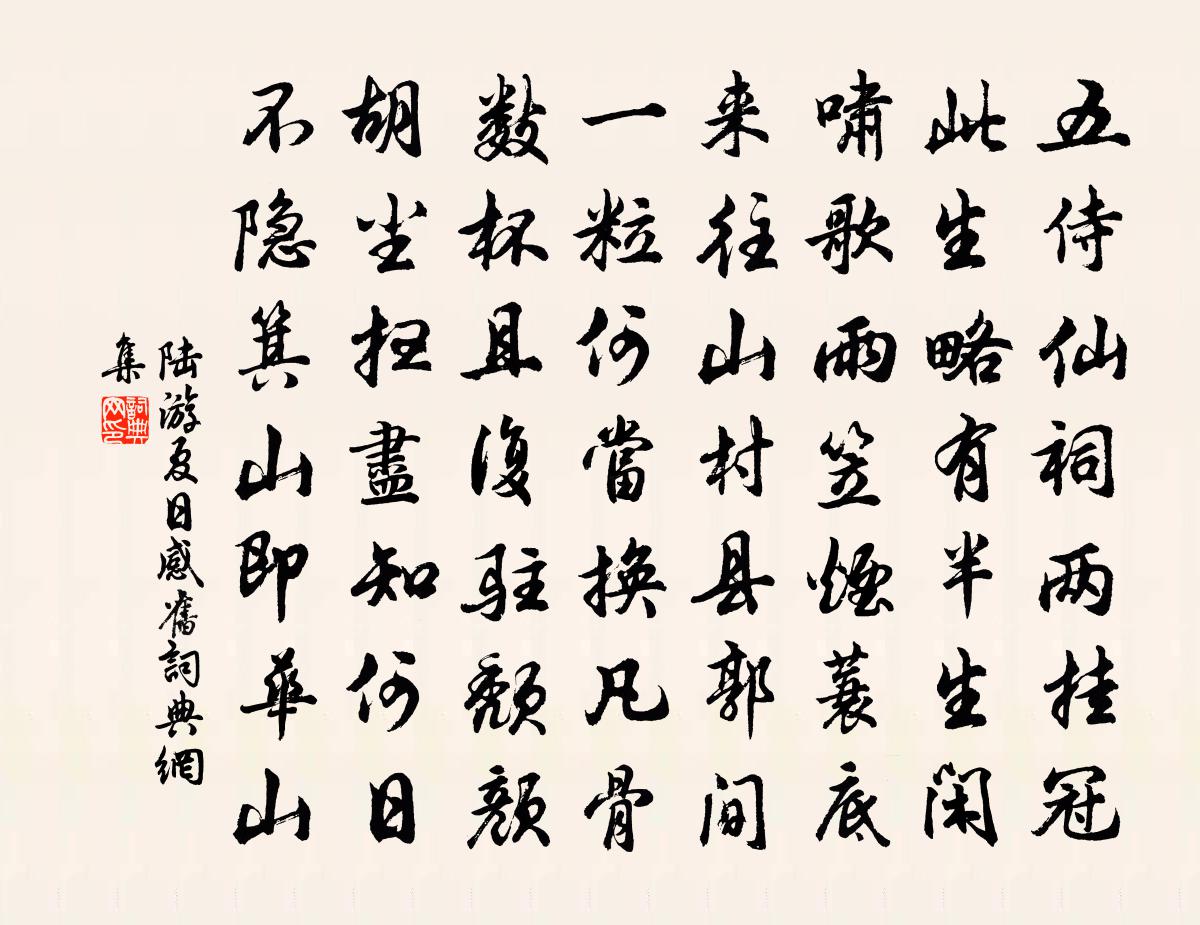 五侍仙祠两挂冠
此生略有半生闲
啸歌雨笠煙蓑底
来往山村县郭间
一粒何當换凡骨
数杯且復驻颓颜
胡尘扫盡知何日
不隐箕山即華山
陆游夏日感舊詞典網
集
詞典网印